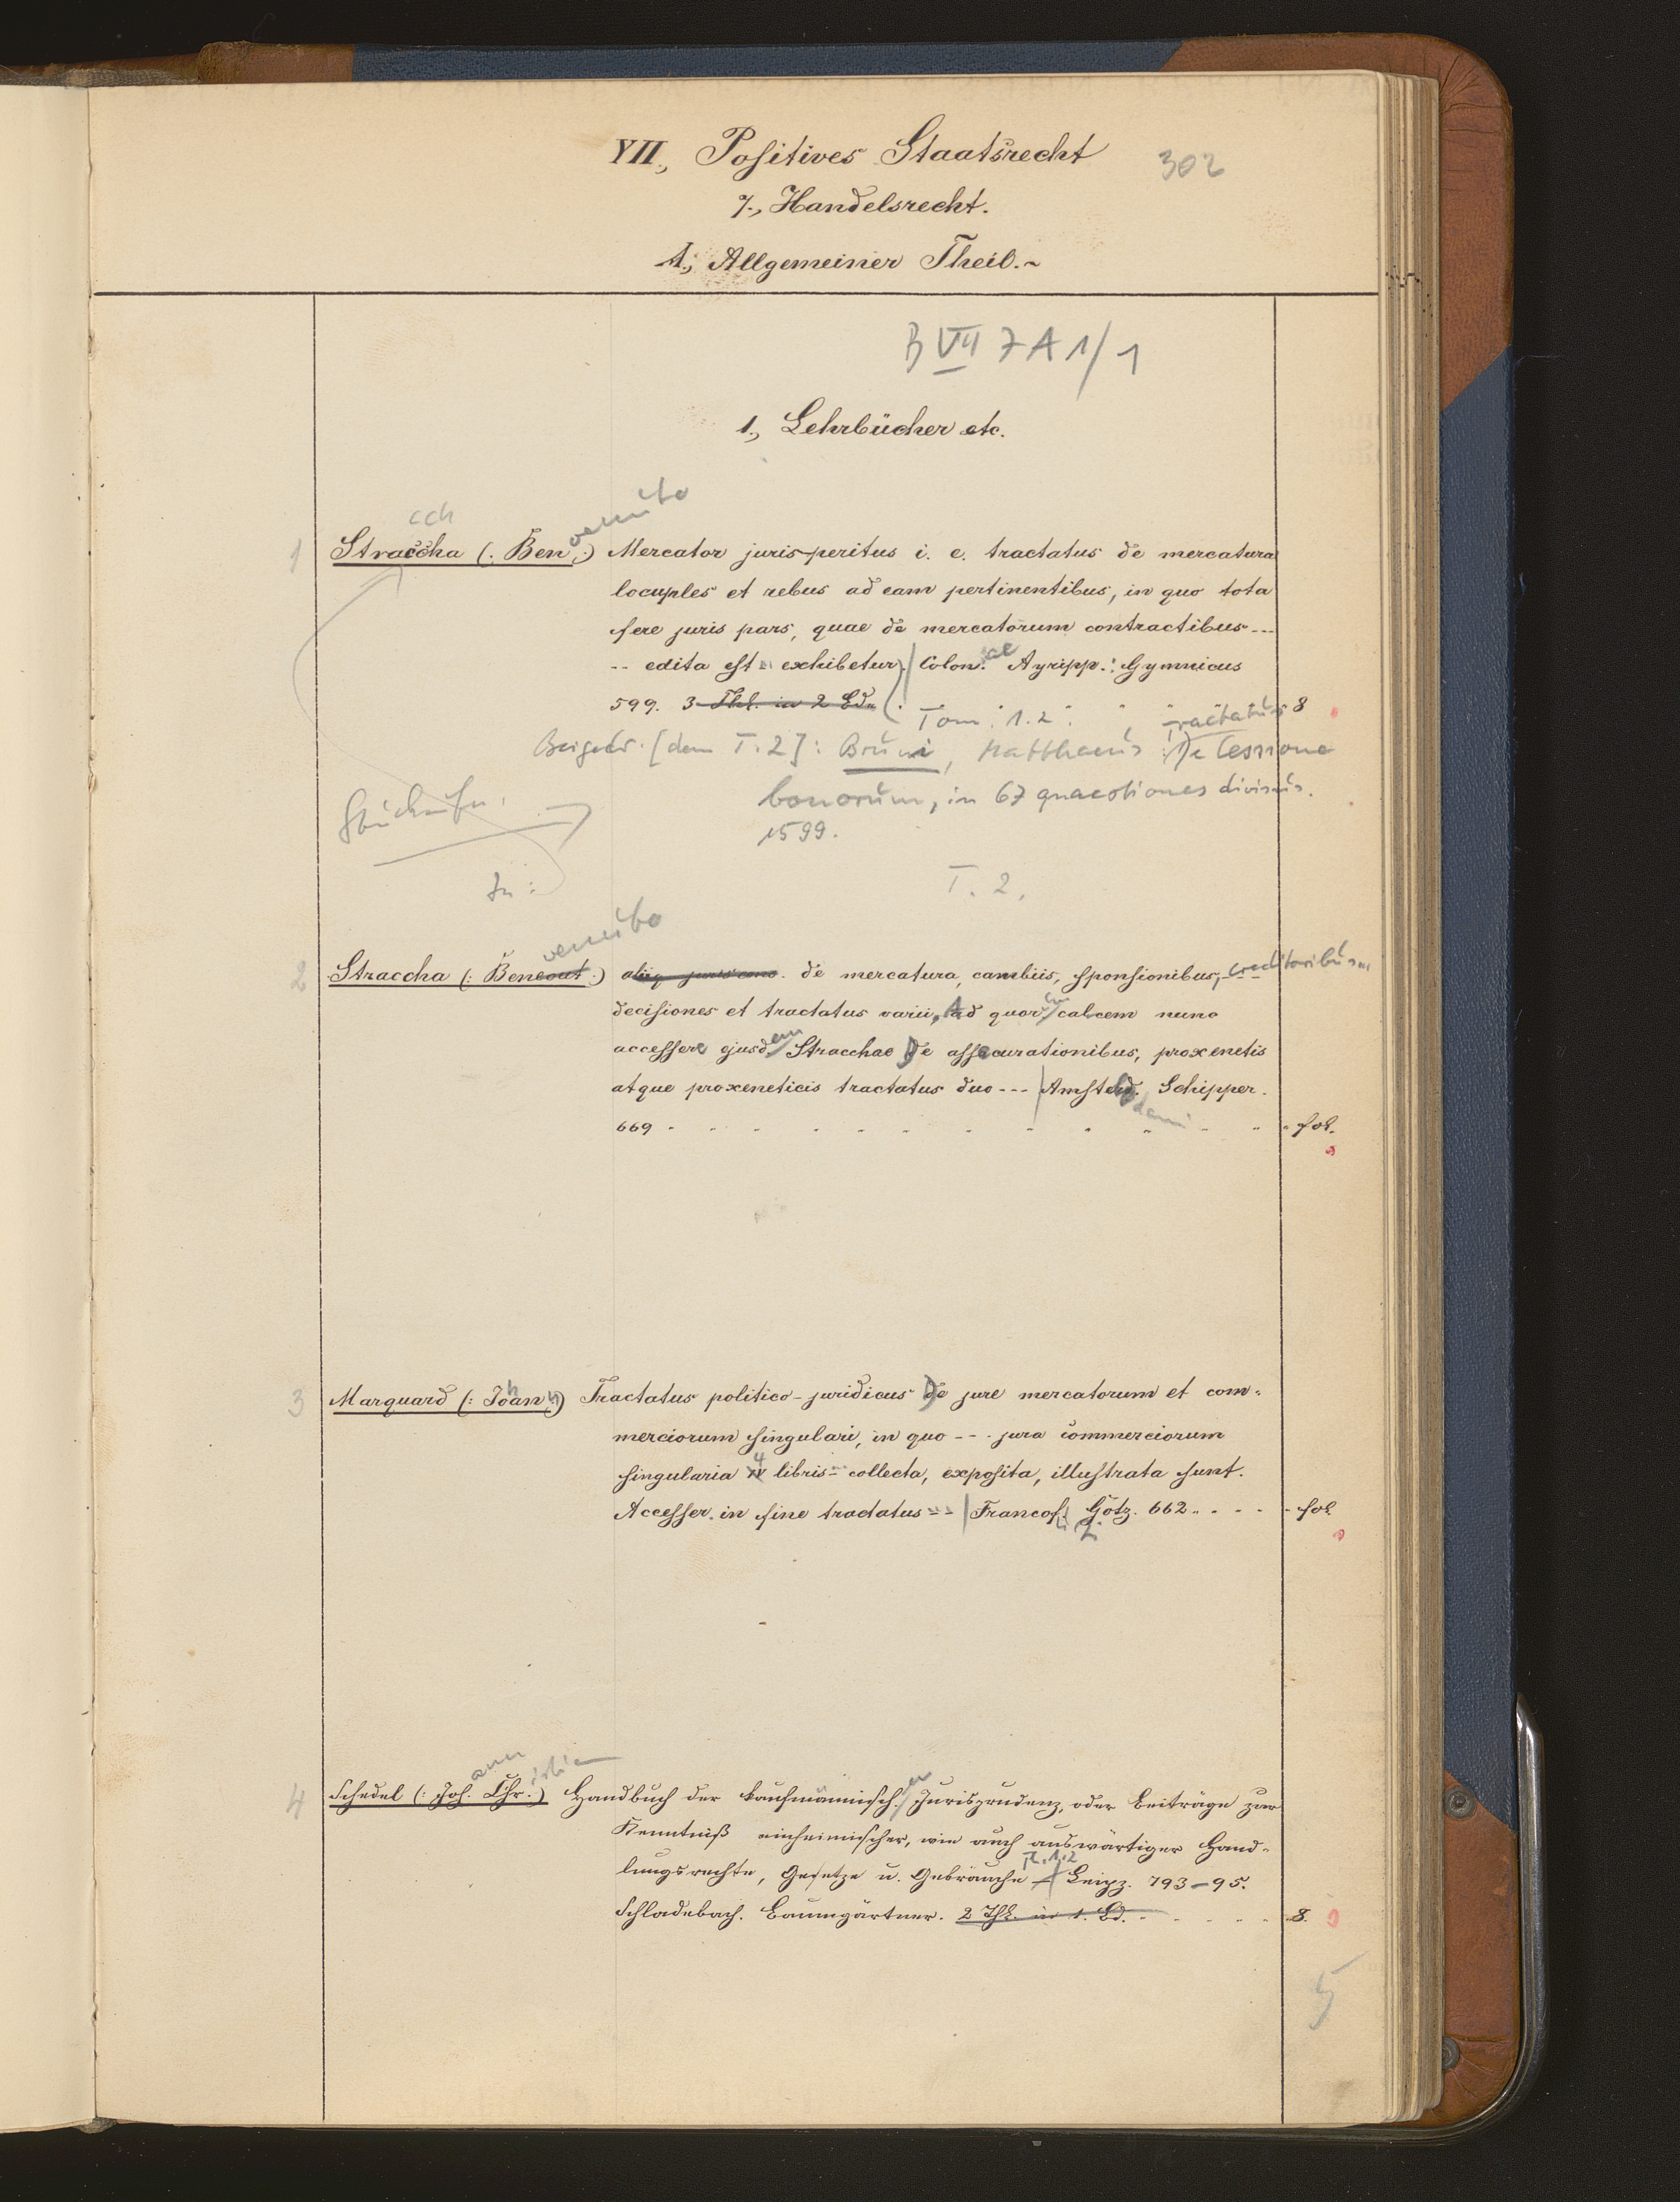 VII., Positives Staatsrecht 302
7., Handelsrecht.
A., Allgemeiner Theil.~
B VII 7 A 1/1
1., Lehrbücher etc.
cch venuto
1 Straccha (: Ben :) Mercator juris peritus i. e. tractatus de mercatura
locuples et rebus ad eam pertinentibus, in quo tota
fere juris pars, quae de mercatorum contractibus ---
-- edita est exhibetur. | Colon. ae Agripp.: Gymnicus
599. 3 Thl. in 2 Bdn Tom. 1.2. Tractatus 8
Beigeb. [dem T. 2]: Bruni, Matthaeus: De Cessione
bonorum, in 67 quaestiones divisus.
1599.
In: T. 2.
venuto
2 Straccha (: Benevut :) aliiq. juriscons. de mercatura, cambiis, sponsionibus, creditoribus
decisiones et tractatus varii, Ad quor calcem nunc
accessere ejusdem Stracchae De assecurationibus, proxenetis
atque proxeneticis tractatus duo --- | Amstelod. Schipper.
dami
669 fol.
3 Marquard (: Johann :) Tractatus politico-juridicus De jure mercatorum et com-
merciorum singulari, in quo --- jura commerciorum
singularia 4 libris collecta, exposita, illustrata sunt.
Accesser. in fine tractatus -- | Francof. Götz. 662 fol.
ann istian
4 Schedel (: Joh. Chr. :) Handbuch der kaufmännisch. en Jurisprudenz, oder Beiträge zur
Kenntniß einheimischer, wie auch auswärtiger Hand-
lungsrechte, Gesetze u. Gebräuche Tl. 1.2 Leipz. 793-95.
Schladebach. Baumgärtner. 2 Thl. in 1. Bd. 8.
5